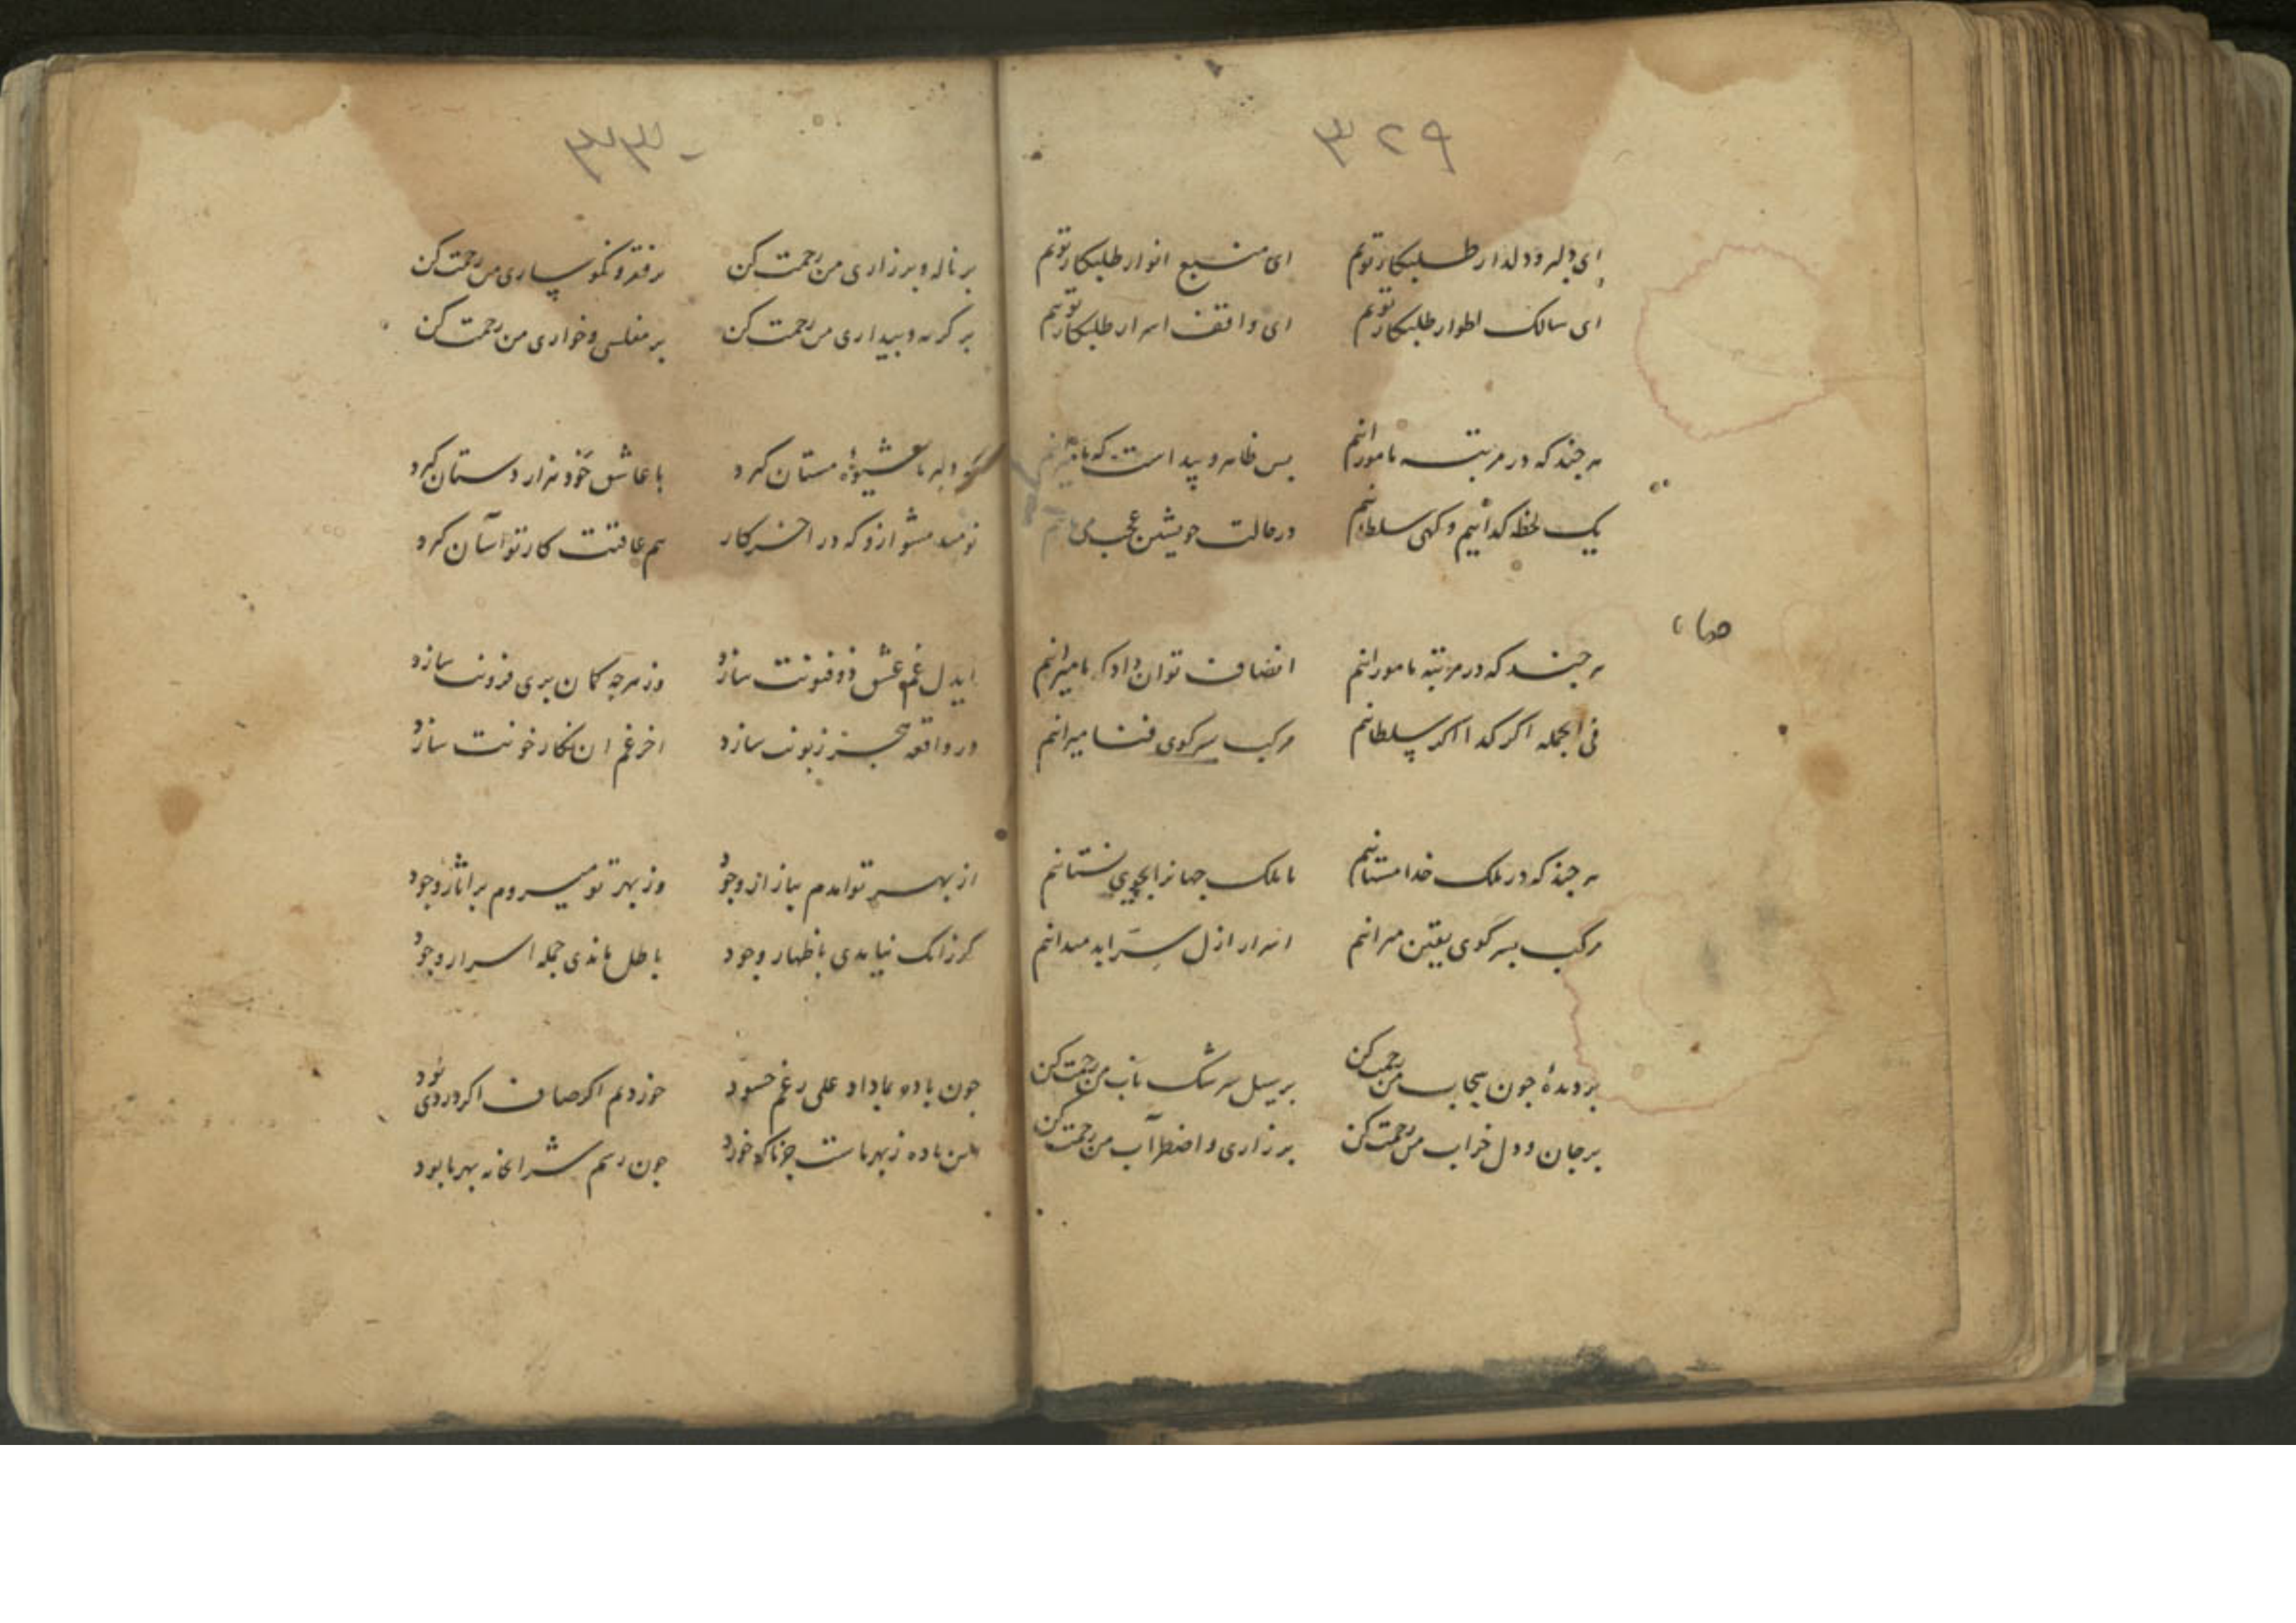 ۳۲۹
ای دلبر و دلدار طلبکار توئم ای منبع انوار طلبکار توئم
ای سالک اطوار طلبکار توئم ای واقف اسرار طلبکار توئم
هر چند که در مرتبه ما مورانیم بس ظاهر و پیداست که ما میرانیم
یک لحظه کدائیم و کهی سلطانیم در حالت خویشتن عجب
هر چند که در مرتبه ما مورانیم انصاف توان داد که ما میرانیم
فی الجمله اکر کدا اکر سلطانیم مرکب بسر کوی فنا میرانیم
هر چند که در ملک خدا مستانیم ما ملک جهانرا بجوی نستانیم
مرکب بسر کوی یقین میرانیم اسرار ازل سر ابد میدانیم
بر دیدهٔ چون سحاب من رحمت کن بر سیل سرشک ناب من رحمت کن
بر جان و دل خراب من رحمت کن بر زاری و اضطراب من رحمت کن
۳۳۰
بر ناله و بر زاری من رحمت کن بر فقر و نکوساری من رحمت کن
بر کریه و بیداری من رحمت کن بر مفلسی و خواری من رحمت کن
کر دلبر ما عشیوهٔ مستان کرد با عاشق خود هزار دستان کرد
نومید مشو ازو که در آخر کار هم عاقبت کار تو آسان کرد
ایدل غم عشق ذوفنونت سازد وز هرچه کمان بری فزونت سازد
در واقعه عجز زبونت سازد اخر غم ان نکار خونت سازد
از بهر تو آمدم بباز از وجود وز بهر تو میروم بر اثار وجود
کر زانک نیامدی باظهار وجود باطل ماندی جمله اسرار وجود
چون باده بما داد علی رغم حسود خوردیم اکر صاف اکر دردی بود
این باده ز بهر ماست چون کرد چون رسم شرابخانه بهر ما بود